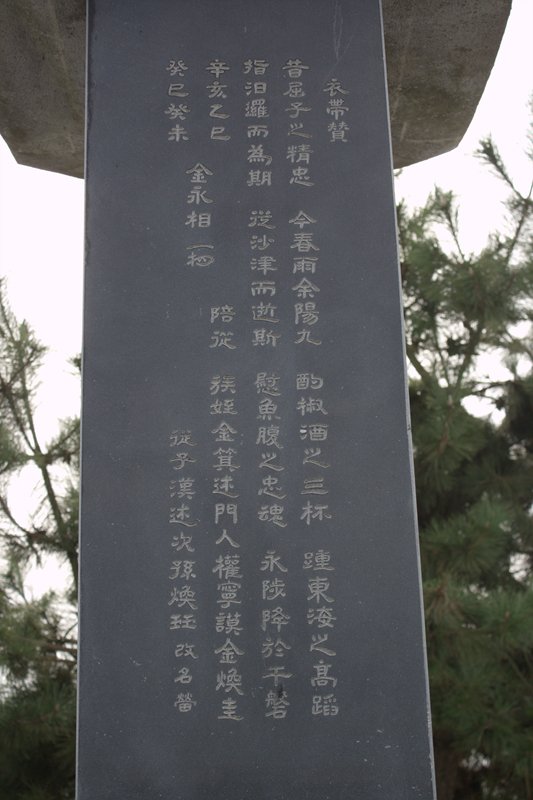 衣帶贊
昔屈子之精忠 今春雨余陽九 酌椒酒之三杯 踵東海之高蹈
指汨羅而為期 從沙津而逝斯 慰魚腹之忠魂 永陟降於千
辛亥乙巳 陪從 族姪金箕述門人權寧謨金煥圭
金永相
癸巳癸未 從子漢述次孫煥珏改名